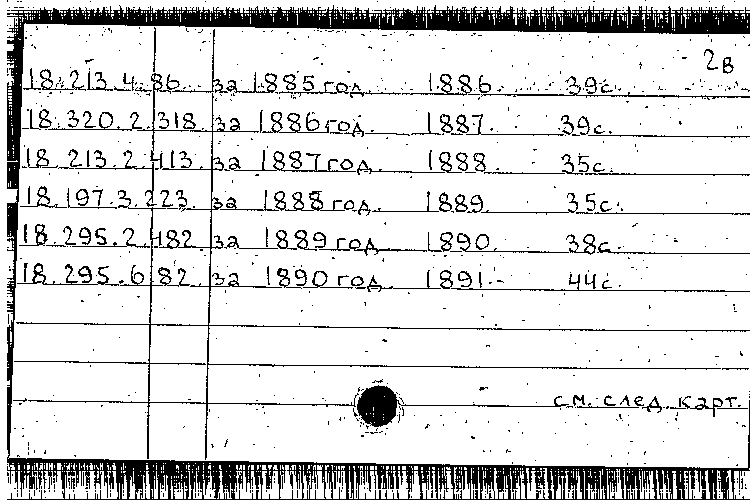 2в
18.213.4.86 за 1885 год. 1886. 39с.
18.320.2.318 за 1886 год. 1887. 39с.
18.213.2.413. за 1887 год. 1888. 35с.
18.197.3.223. за 1888 год. 1889. 35с.
18.295.2.482 за 1889 год 1890. 38с.
18.295.6.82. за 1890 год. 1891.- 44с.
см. след. карт.